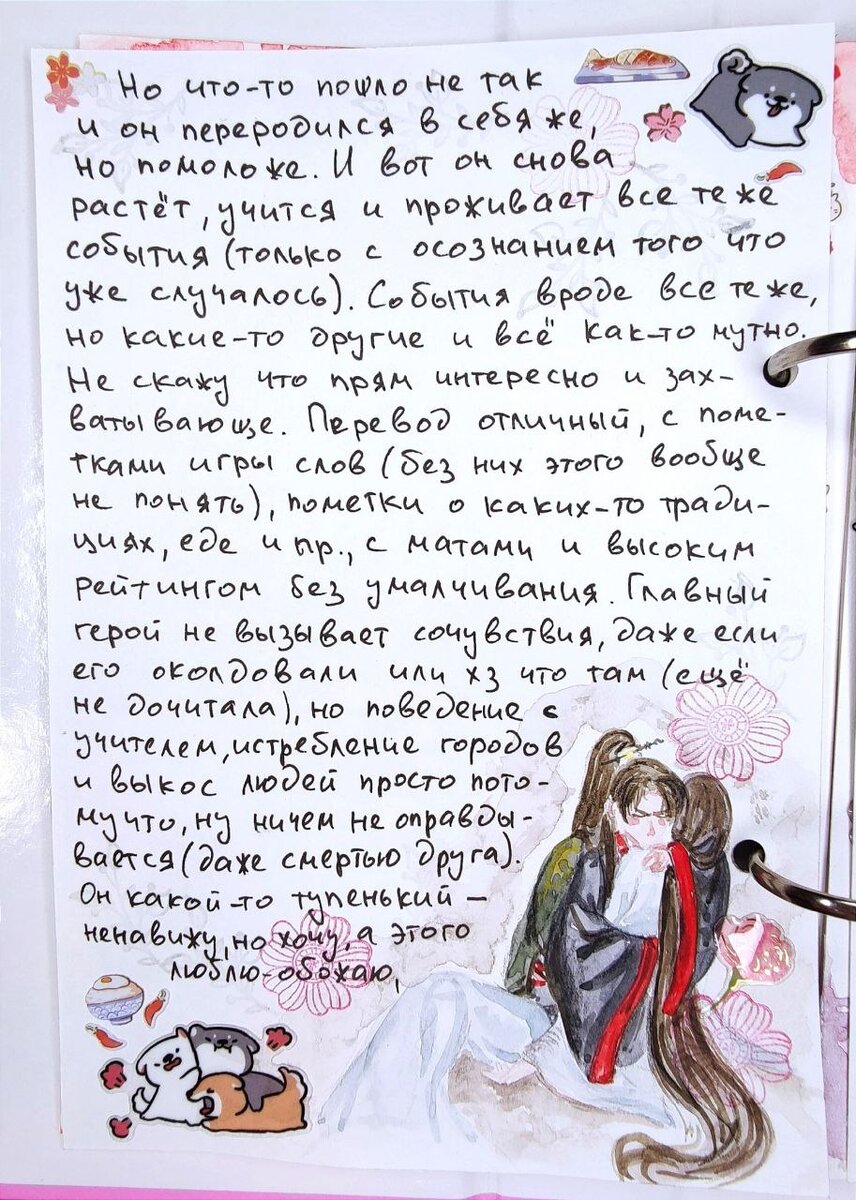 Но что-то пошло не так
и он переродился в себя же,
но помоложе. И вот он снова
растёт, учится и проживает все те же
события (только с осознанием того что
уже случалось). События вроде все те же,
но какие-то другие и всё как-то мутно.
Не скажу что прям интересно и зах-
ватывающе. Перевод отличный, с поме-
тками игры слов (без них этого вообще
не понять), пометки о каких-то тради-
циях, еде и пр., с матами и высоким
рейтингом без умалчивания. Главный
герой не вызывает сочувствия, даже если
его околдовали или хз что там (ещё
не дочитала), но поведение с
учителем, истребление городов
и выкос людей просто пото-
му что, ну ничем не оправды-
вается (даже смертью друга).
Он какой-то тупенький -
ненавижу, но хочу, а этого
люблю-обожаю,